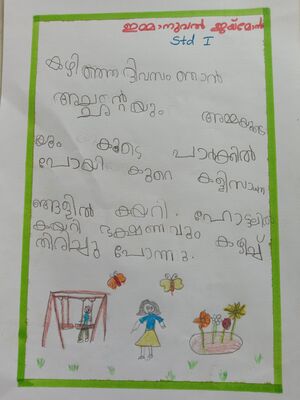 ഇമ്മാനുവൽ ജയ്മോൻ
Std I
കഴിഞ്ഞ ദിവസം ഞാൻ
അച്ഛൻ്റെയും അമ്മയുടെ
യും കൂടെ പാർക്കിൽ
പോയി കുറെ കളിസാധന
ങ്ങളിൽ കയറി. ഹോട്ടലിൽ
കയറി ഭക്ഷണവും കഴിച്ച്
തിരിച്ചു പോന്നു.